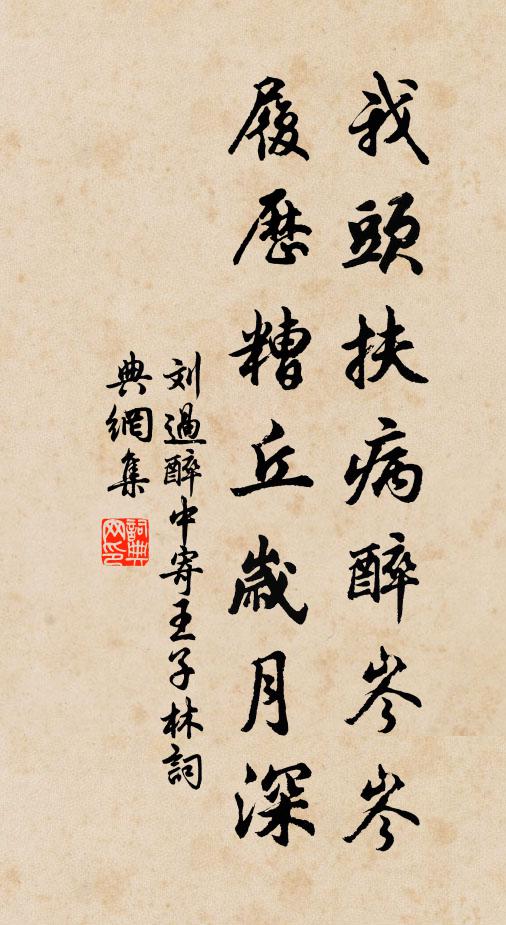 我頭扶病醉岑岑
履歷糟丘歲月深
刘過醉中寄王子林詞
典網集
詞典網印